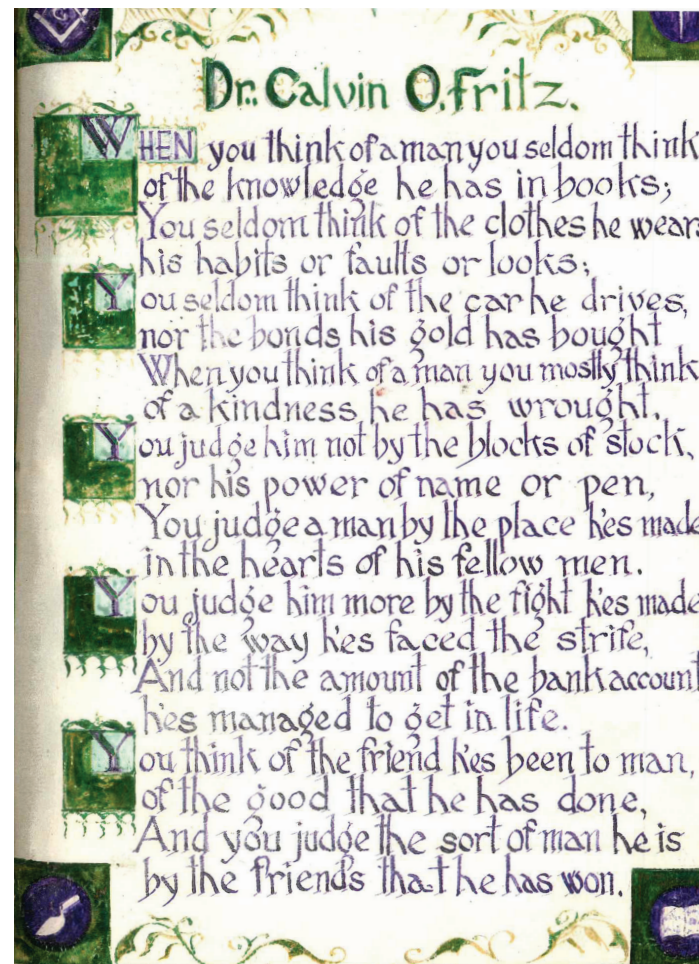 Dr. Calvin O. Fritz.
WHEN you think of a man you seldom think
of the knowledge he has in books;
You seldom think of the clothes he wears
his habits or faults or looks;
You seldom think of the car he drives,
nor the bonds his gold has bought
When you think of a man you mostly think
of a kindness he has wrought.
You judge him not by the blocks of stock,
nor his power of name or pen,
You judge a man by the place he's made
in the hearts of his fellow men.
You judge him more by the fight he's made
by the way he's faced the strife,
And not the amount of the bank account
he's managed to get in life.
You think of the friend he's been to man,
of the good that he has done,
And you judge the sort of man he is
by the friends that he has won.